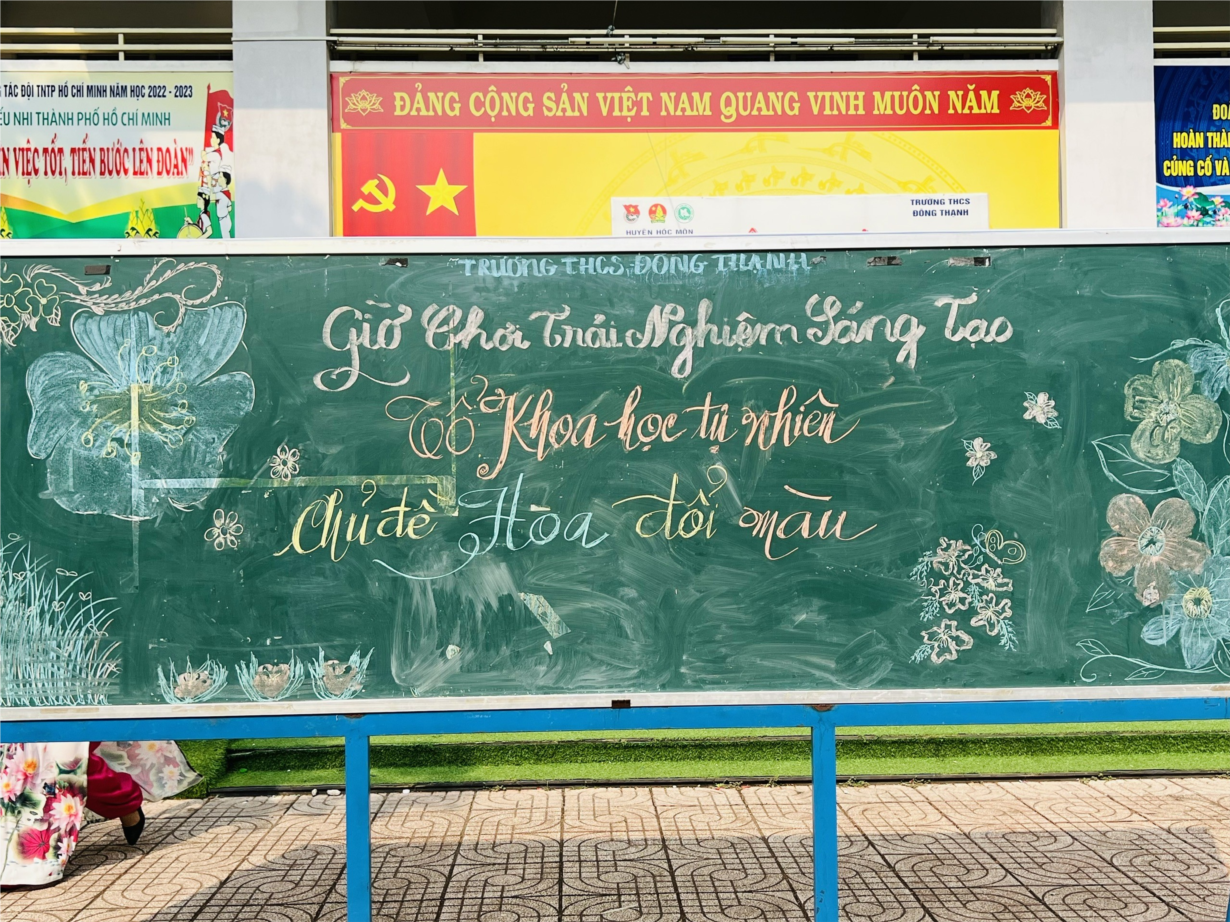 G TÁC ĐỘI TNTP HỒ CHÍ MINH NĂM HỌC 2022 - 2023
ẾU NHI THÀNH PHỐ HỒ CHÍ MINH
VIỆC TỐT, TIẾN BƯỚC LÊN ĐOÀN"
ĐẢNG CỘNG SẢN VIỆT NAM QUANG VINH MUÔN NĂM
HUYỆN HÓC MÔN
TRƯỜNG THCS
ĐÔNG THẠNH
HOÀN THÀ
CỦNG CỐ VÀ
TRƯỜNG THCS ĐÔNG THẠNH
Giờ Chơi Trải Nghiệm Sáng Tạo
Tổ Khoa học tự nhiên
Chủ đề Hoa đổi màu